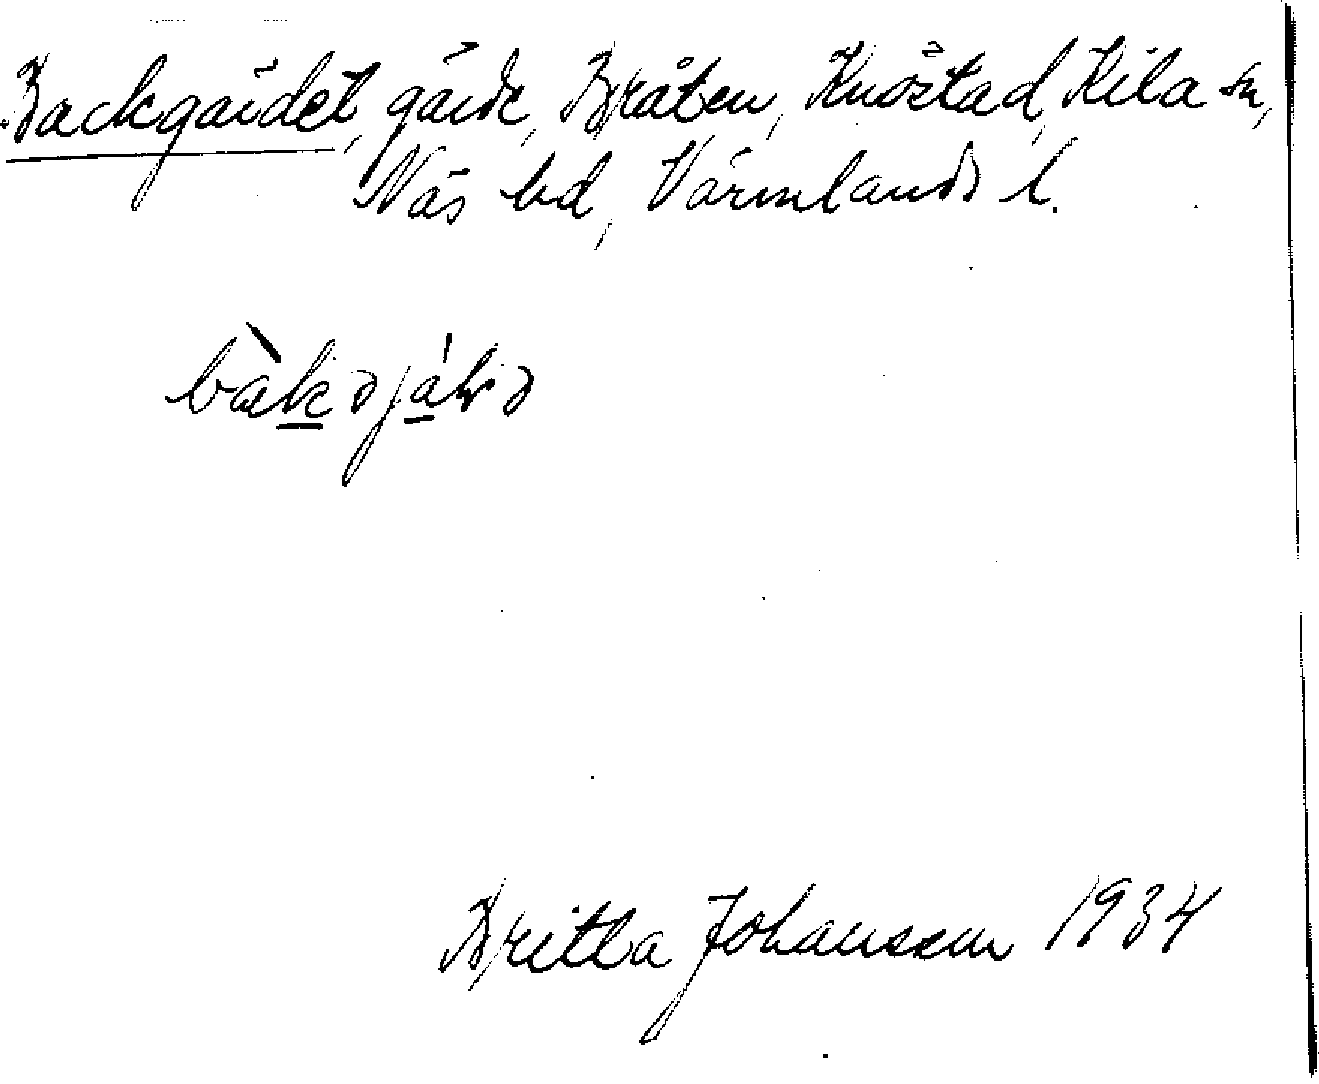 Backgärdet, gärde, Bråten, Knöstad, Kila sn,
Näs hd, Värmlands l.
Britta Johansson 1934